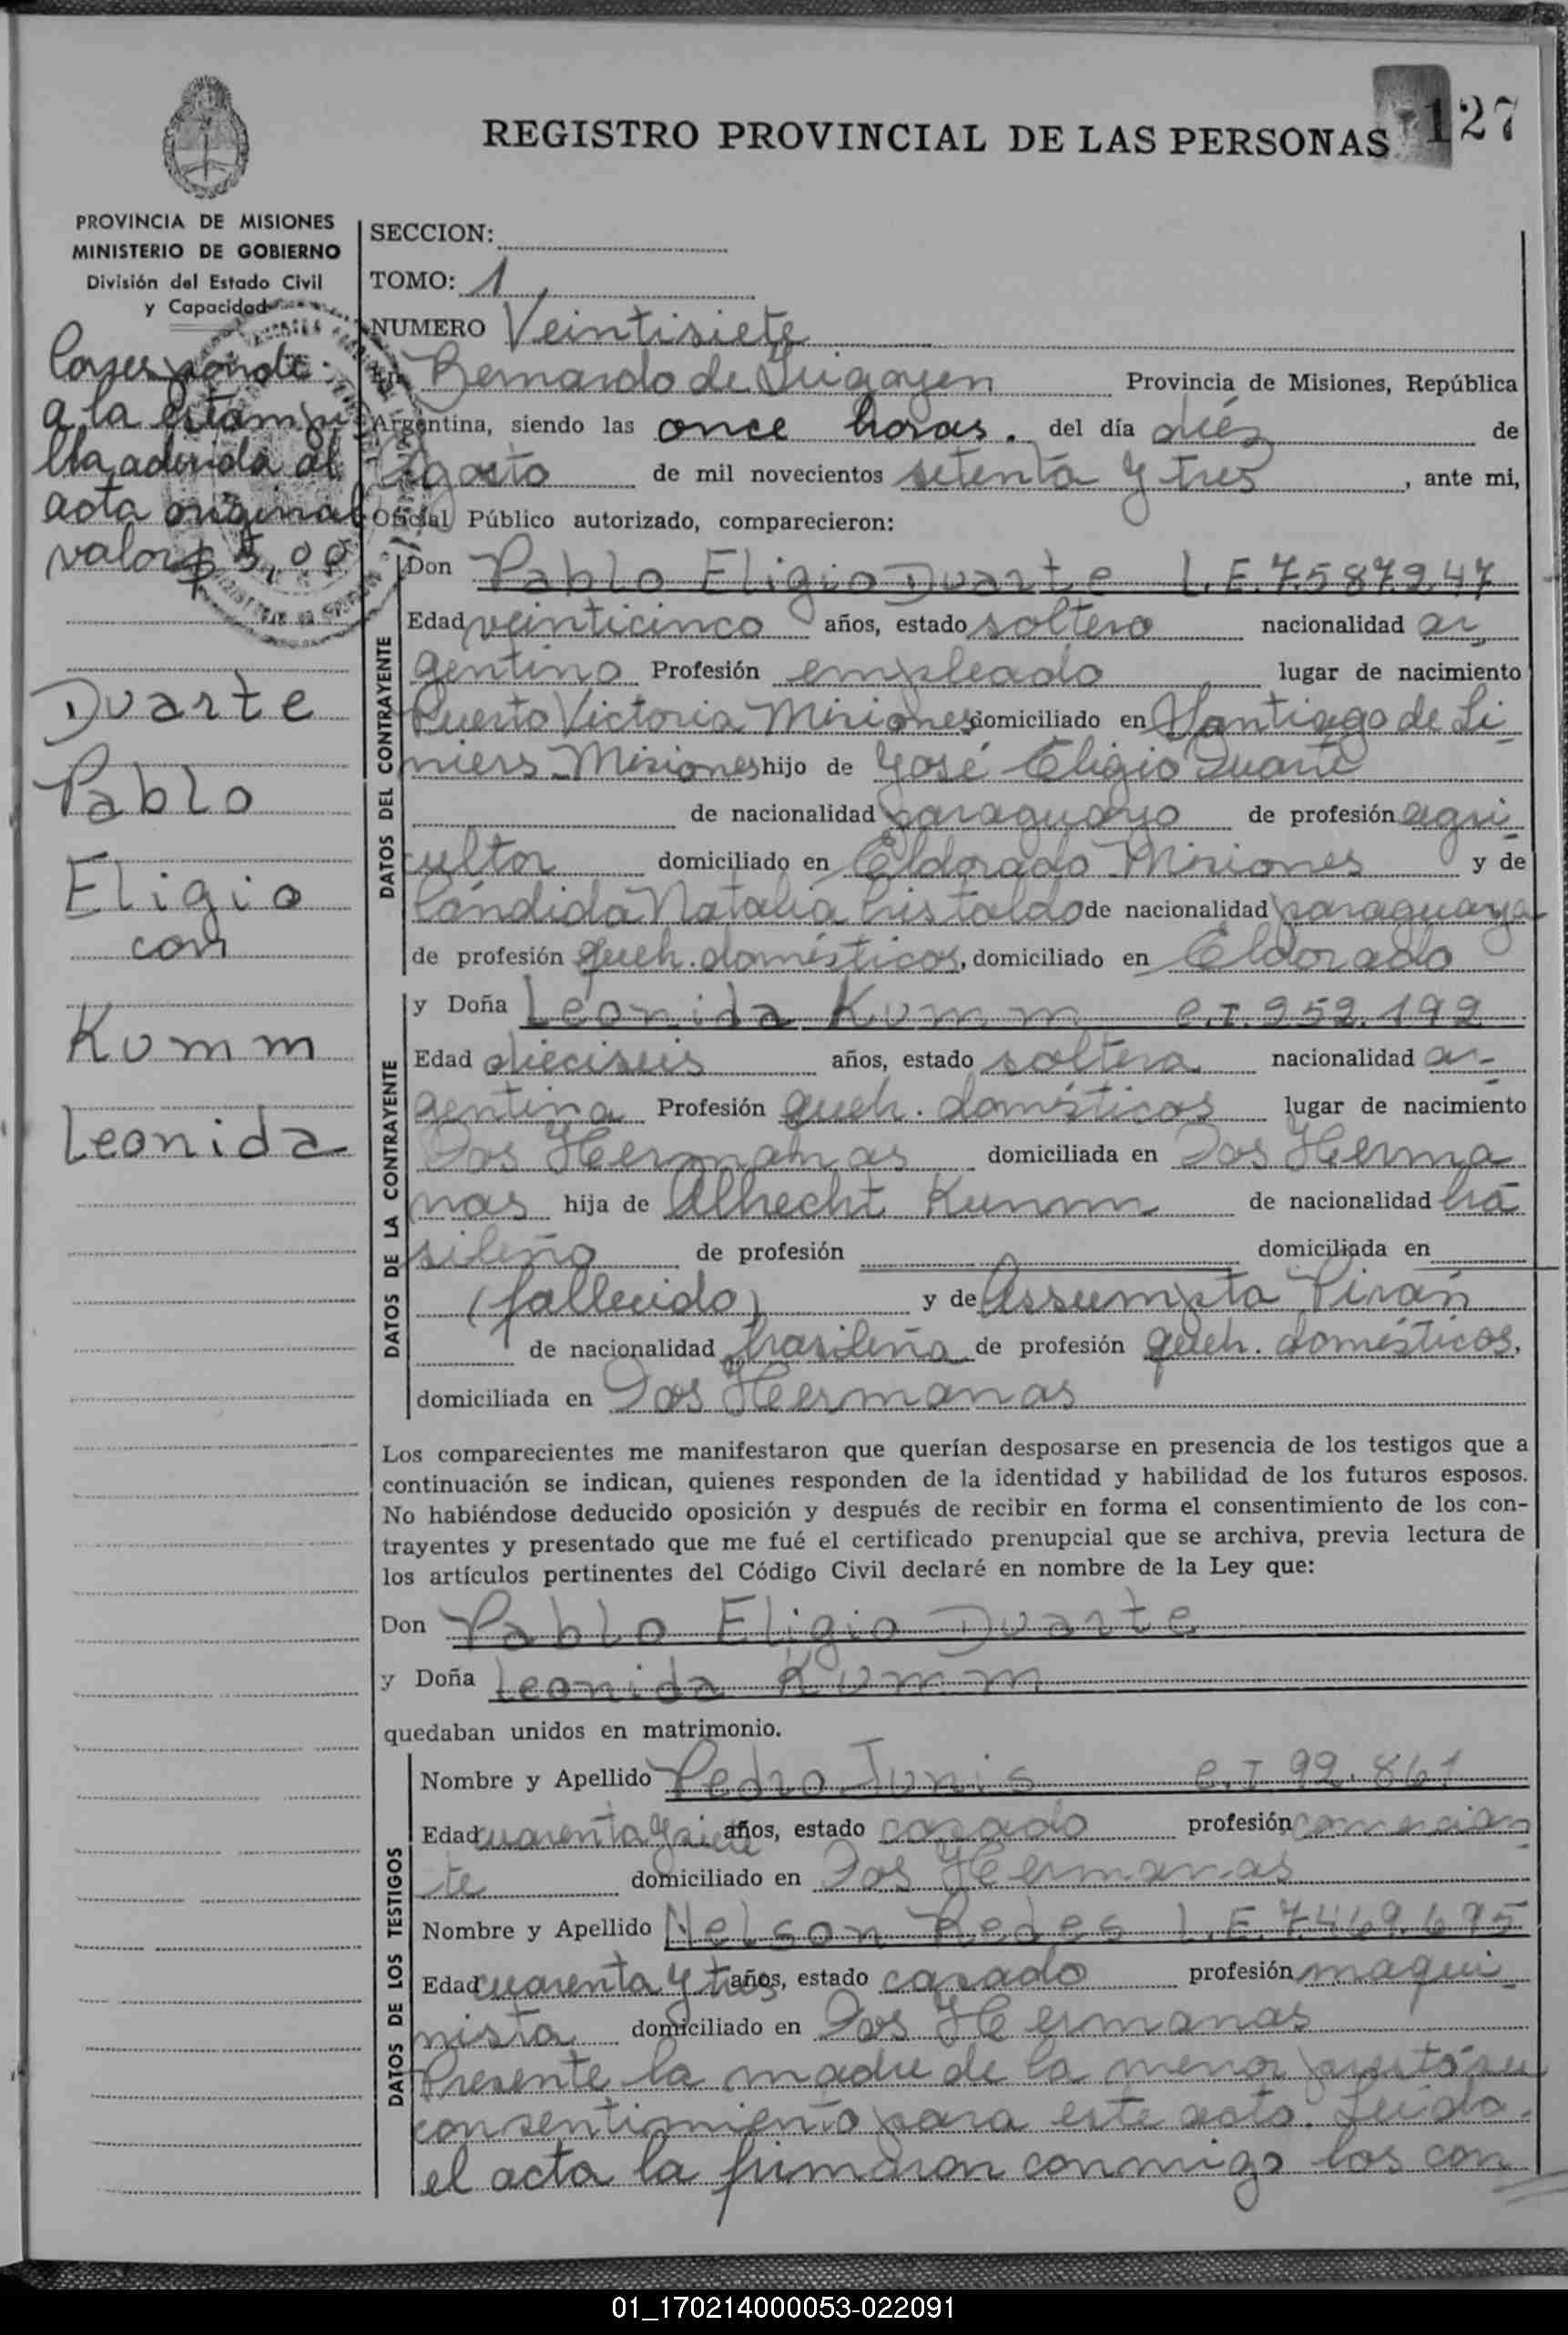 REGISTRO PROVINCIAL DE LAS PERSONAS 127
PROVINCIA DE MISIONES
MINISTERIO DE GOBIERNO
División del Estado Civil
y Capacidad
Corresponde
a la estampi
lla aderida al
acta original
valor $ 5,00
Duarte
Pablo
Eligio
con
Kumm
Leonida
SECCION:
TOMO: 1
NUMERO Veintisiete
En Bernardo de Irigoyen Provincia de Misiones, República
Argentina, siendo las once horas. del día diéz de
Agosto de mil novecientos setenta y tres, ante mi,
Oficial Público autorizado, comparecieron:
DATOS DEL CONTRAYENTE
Don Pablo Eligio Duarte L.E.7.587.947
Edad veinticinco años, estado soltero nacionalidad ar
gentino Profesión empleado lugar de nacimiento
Puerto Victoria Misiones domiciliado en Santiago de Li
niers Misiones hijo de José Eligio Duarte
de nacionalidad paraguayo de profesión agri
cultor domiciliado en Eldorado Misiones y de
Cándida Natalia Cristaldo de nacionalidad paraguaya
de profesión queh. domésticos, domiciliado en Eldorado
DATOS DE LA CONTRAYENTE
y Doña Leonida Kumm C.I.952.192
Edad dieciseis años, estado soltera nacionalidad ar-
gentina Profesión queh. domésticos lugar de nacimiento
Dos Hermanas domiciliada en Dos Herma
nas hija de Albrecht Kumm de nacionalidad bra
sileño de profesión domiciliada en
(fallecido) y de Assumpta Pirán
de nacionalidad brasileña de profesión queh. domésticos,
domiciliada en Dos Hermanas
Los comparecientes me manifestaron que querían desposarse en presencia de los testigos que a
continuación se indican, quienes responden de la identidad y habilidad de los futuros esposos.
No habiéndose deducido oposición y después de recibir en forma el consentimiento de los con-
trayentes y presentado que me fué el certificado prenupcial que se archiva, previa lectura de
los artículos pertinentes del Código Civil declaré en nombre de la Ley que:
Don Pablo Eligio Duarte
y Doña Leonida Kumm
quedaban unidos en matrimonio.
DATOS DE LOS TESTIGOS
Nombre y Apellido Pedro Junis C.I 99.861
Edad cuarenta y siete años, estado casado profesión comercian
te domiciliado en Dos Hermanas
Nombre y Apellido Nelson Redes L.E.7.469.695
Edad cuarenta y tres años, estado casado profesión maqui
nista domiciliado en Dos Hermanas
Presente la madre de la menor prestó su
consentimiento para este acto. Leída
el acta la firmaron conmigo los con
01_170214000053-022091